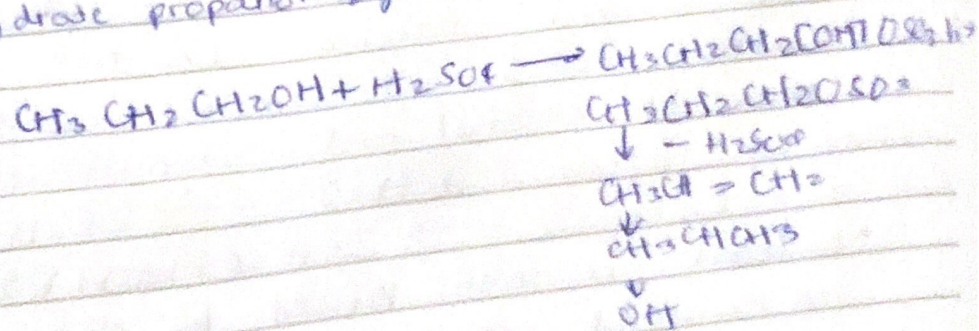 drate propano
CH3 CH2 CH2OH + H2SO4 → CH3CH2CH2[OH]
CH3CH2CH2OSO3
↓ - H2SO4
CH3CH = CH2
↓
CH3CHCH3
↓
OH